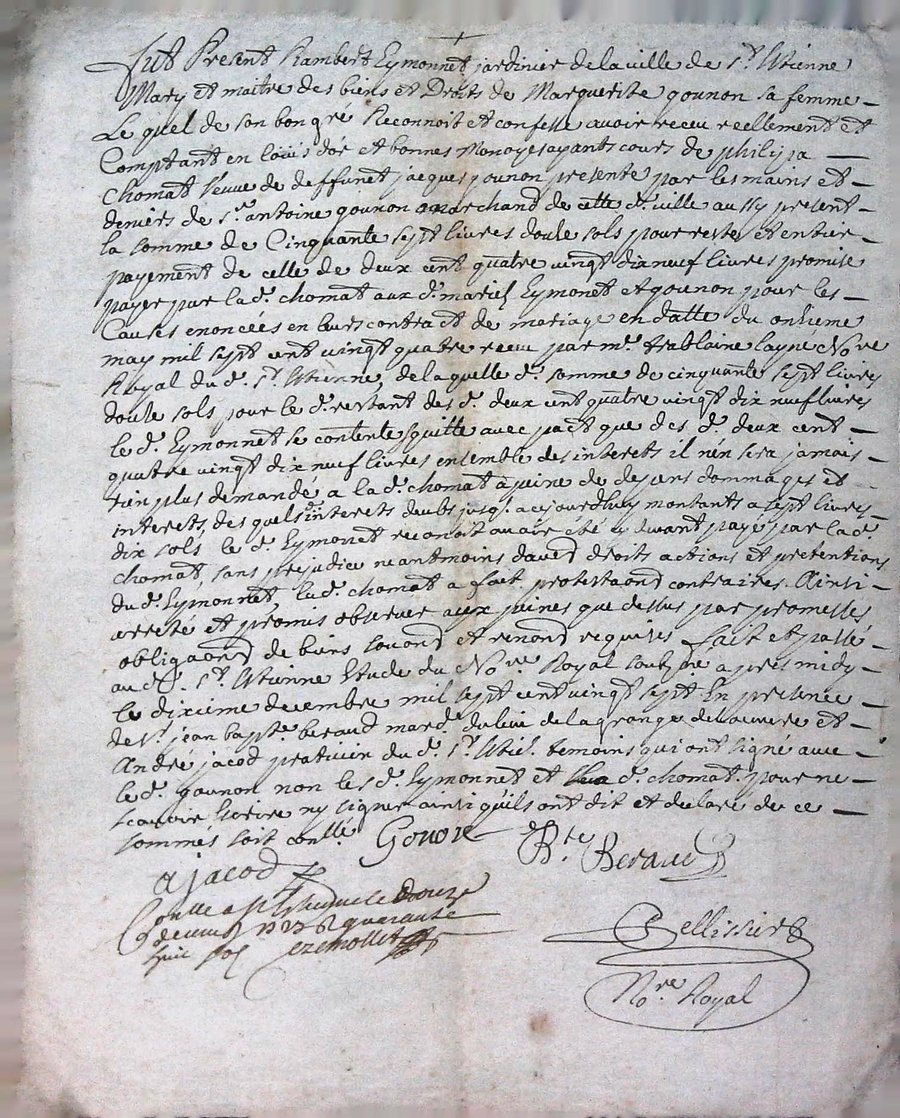 Fut Present Rambert Eymonnet jardinier de la ville de St. Etienne
Mary et maitre des biens et Droits de Marguerite gounon sa femme
Le quel de son bon gré Reconnoit et confesse avoir receu reellement et
Comptant en loüis dor et bonnes Monoyes ayants cours de philipa
chomat veuve de deffunct jacques gounon presente par les mains et
deniers de sr. antoine gounon marchand de cette d. ville aussy present
la somme de Cinquante sept livres douze sols pour reste et entier
payement de celle de deux cent quatre vingt dix neuf livres promise
payer par la d. chomat aux d. mariés Eymonet et gounon pour les
Causes enoncées en leurs contract de mariage en datte du onzieme
may mil sept cent vingt quatre receu par me. frablaine layne Nore
Royal du d. St. Etienne, de laquelle d. somme de cinquante sept livres
douze sols pour le d. restant des d. deux cent quatre vingt dix neuf livres
le d. Eymonnet se contente & quitte avec pact que des d. deux cent
quatre vingt dix neuf livres ensemble des interets il n'en sera jamais
rien plus demandé a la d. chomat a peine de depens dommages et
interets, des quels interets deubs jusq. a ce jourdhuy montants a sept livres
dix sols, le d. Eymonet reconoit avoir été cy devant payé par la d.
chomat, sans prejudice neantmoins dautres droits actions et pretentions
du d. Eymonnet, la d. chomat a fait protestaons contraires. Ainsi
arreté et promis observer aux peines que dessus par promesses
obligaons de biens soumons et renons requises fait et passé
au d. St. Etienne Etude du Nore Royal soubz.né apres midy
le dixieme decembre mil sept cent vingt sept En presence
de Sr. jean bapte. beraud mard. du lieu de la grange de loeuvre et
André jacod praticien du d. St. Eti. temoins qui ont signé avec
le d. gounon non les d. Eymonnet et la d. chomat pour ne
scavoir Ecrire ny signer ainsi quils ont dit et declaré de ce
sommés soit conllé. Gonon Bte Beraud
a jacod
Conllé a St Etienne le Douze
decemb 1727 R quarante
huit sols
Pellissier
Nore Royal